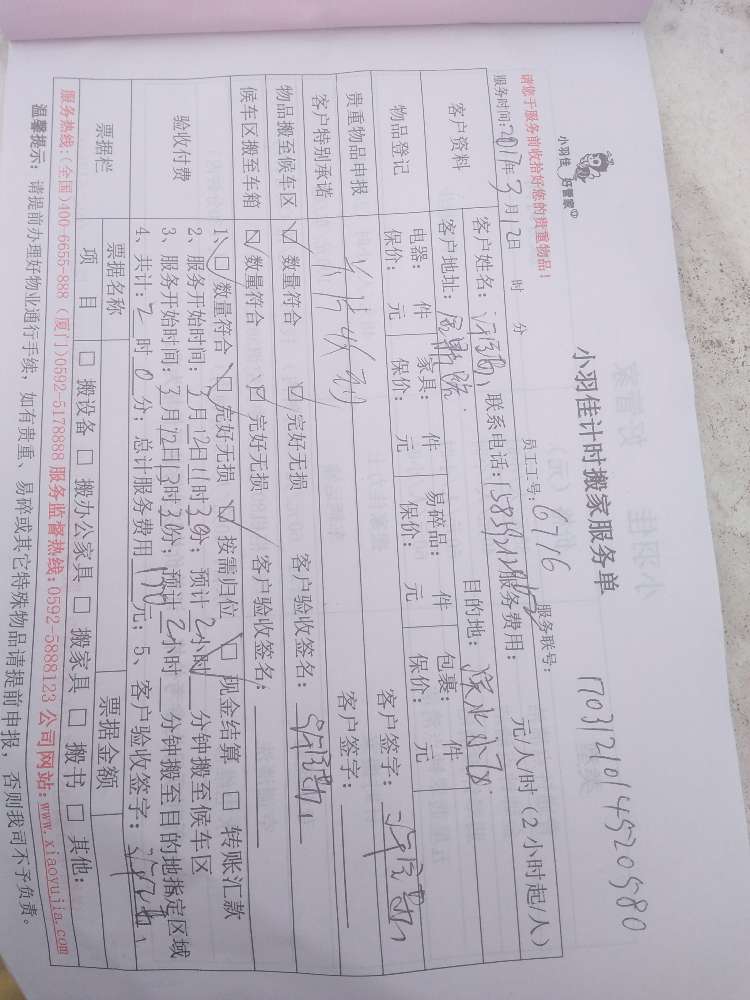 小羽佳 好管家
小羽佳计时搬家服务单
1703121014520580
请您于服务前收拾好您的贵重物品!
员工工号: 6716 服务联号:
服务时间: 2017年 3 月 12日 时 分
客户资料 客户姓名: 联系电话: 服务费用: 元/人/时 (2小时起/人)
客户地址: 目的地:
物品登记 电器: 件 家具: 件 易碎品: 件 包裹: 件 客户签字:
保价: 元 保价: 元 保价: 元 保价: 元
贵重物品申报 客户签字:
客户特别承诺
物品搬至候车区 ☑ 数量符合 ☑ 完好无损 客户验收签名:
候车区搬至车箱 ☑ 数量符合 ☑ 完好无损 客户验收签名:
验收付费 1、☑ 数量符合 ☑ 完好无损 ☑ 按需归位 ☑ 现金结算 □ 转账汇款
2、服务开始时间: 3月12日11时30分; 预计 2小时 分钟搬至候车区
3、服务开始时间: 3月12日13时30分; 预计 2小时 分钟搬至目的地指定区域
4、共计: 2 时 0 分; 总计服务费用 170 元; 5、客户验收签字:
票据栏 票据名称 票据金额
项 目 □ 搬设备 □ 搬办公家具 □ 搬家具 □ 搬书 □ 其他:
服务热线:(全国)400-6655-888 (厦门)0592-5178888 服务监督热线:0592-5888123 公司网站:www.xiaoyujia.com
温馨提示: 请提前办理好物业通行手续, 如有贵重、易碎或其它特殊物品请提前申报, 否则我司不予负责。